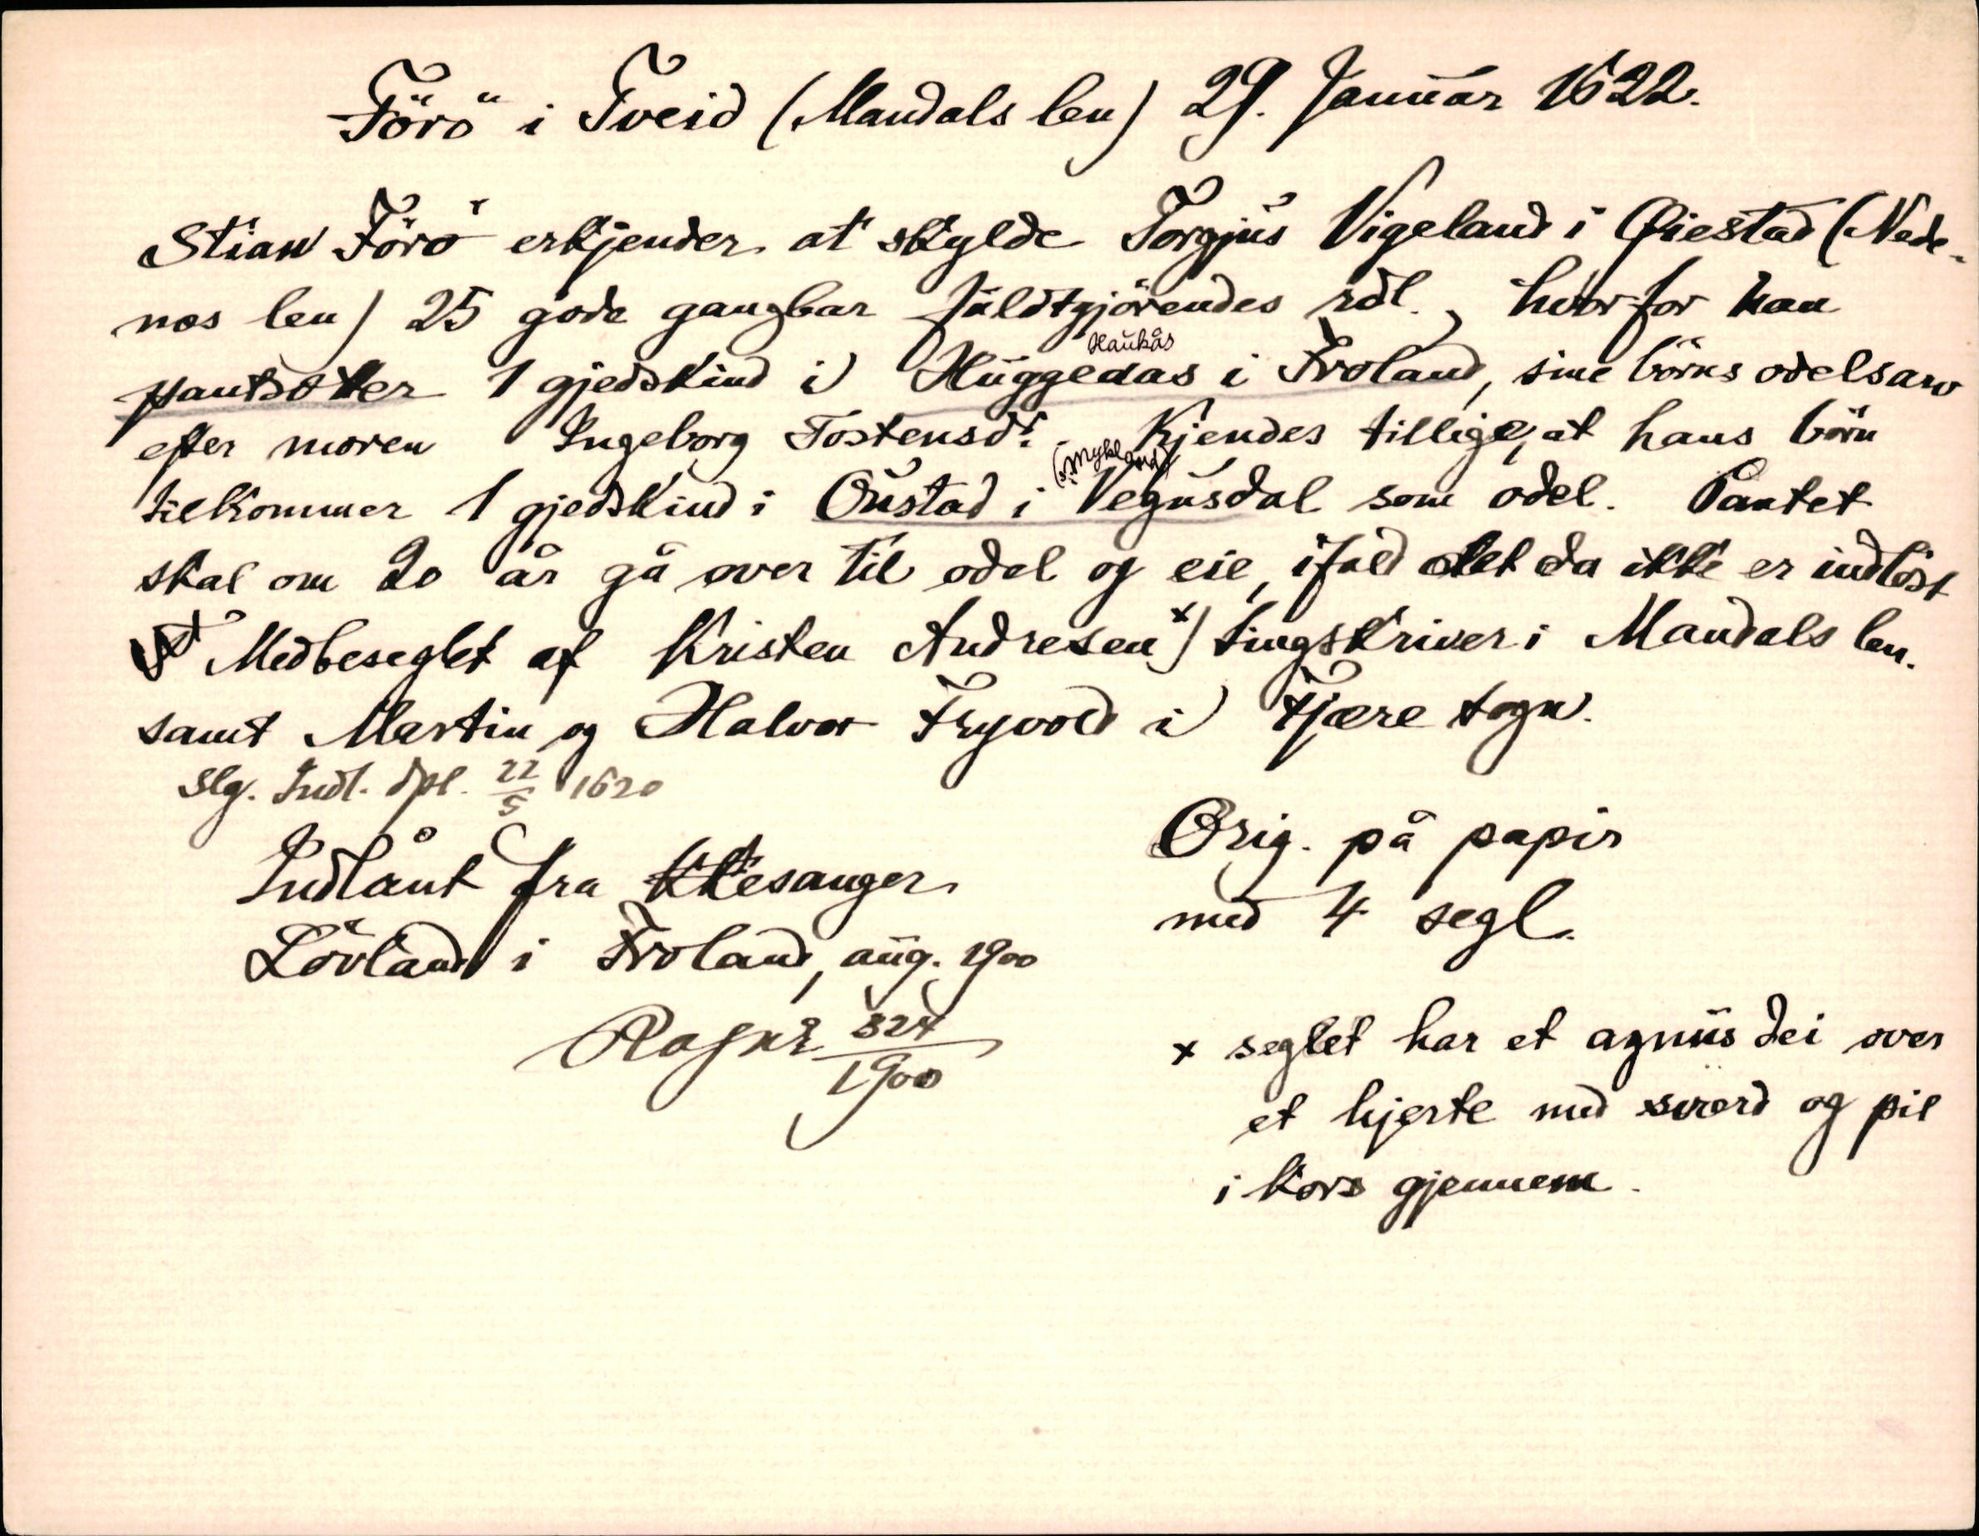 Förö i Tveid (Mandals len) 29. Januar 1622.
Stian Förö erkjender at skylde Torgjus Vigeland i Øiestad (Nede-
nes len) 25 gode gangbar fuldtgjörendes rdl., hvorfor han
Haukås
pantsætter 1 gjedskind i Huggeaas i Froland, sine börns odelsarv
efter moren Ingeborg Tostensdt. Kjendes tillige, at hans börn
(i Mykland)
tilkommer 1 gjedskind i Oustad i Vegusdal som odel. Pantet
skal om 20 år gå over til odel og eie, ifald det da ikke er indlöst
Medbeseglet af Kristen Andresen x) tingskriver i Mandals len.
samt Martin og Halvor Fryvold i Fjære sogn.
Slg. Indl. dpl. 22/5 1620
Indlånt fra Kesanger
Lövland i Froland, aug. 1900
Ragnr 324/1900
Orig. på papir
med 4 segl.
x seglet har et agnus dei over
et hjerte med sværd og pil
i kors gjennem.